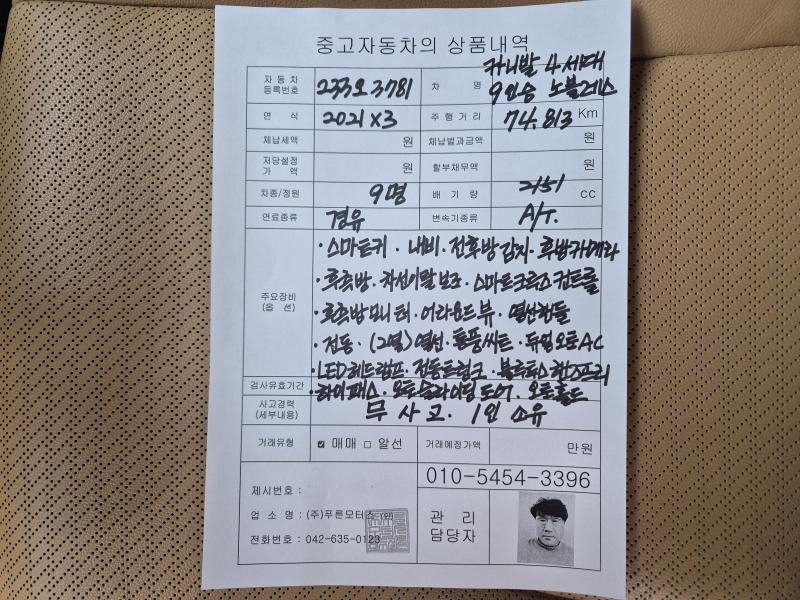 중고자동차의 상품내역
자동차 등록번호 233오3781 차 명 카니발 4세대 9인승 노블레스
연 식 2021 x 3 주행거리 74,813 Km
체납세액 원 체납벌과금액 원
저당설정 가 액 원 할부채무액 원
차종/정원 9명 배 기 량 2151 CC
연료종류 경유 변속기종류 A/T.
주요장비 (옵 션)
·스마트키·내비·전후방감지·후방카메라
·후측방·차선이탈보조·스마트크루즈컨트롤
·후측방모니터·어라운드뷰·열선핸들
·전동·(2열)열선·통풍씨트·듀얼오토AC
·LED헤드램프·전동트렁크·블루투스핸즈프리
검사유효기간 ·하이패스·오토슬라이딩도어·오토홀드
사고경력 (세부내용) 무사고. 1인소유
거래유형 ☑ 매매 □ 알선 거래예정가액 만원
010-5454-3396
제시번호 :
업 소 명 : (주)푸른모터스 (인)
전화번호 : 042-635-0123
관 리 담당자